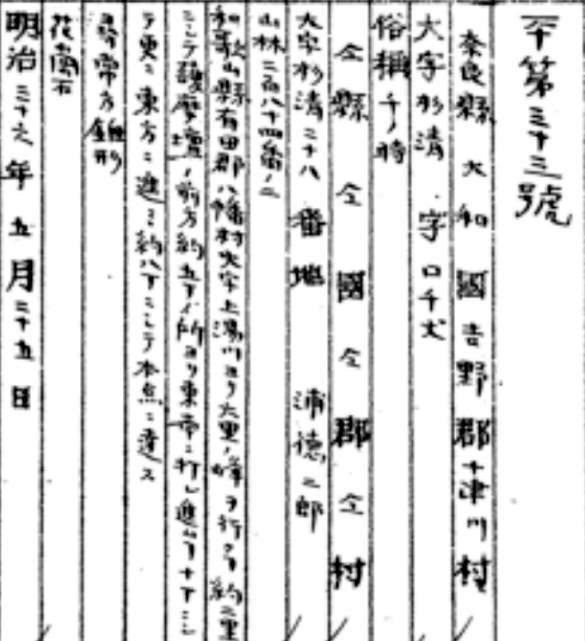 平第三十三號
奈良縣大和國吉野郡十津川村
大字杉清 字口千丈
俗稱千ノ時
仝縣仝國仝郡仝村
大字杉清二十八番地 浦德二郎
山林二百八十四番ノ二
和歌山縣有田郡八幡村大字上湯川ヨリ六里ノ峰ヲ行クヿ約二里
ニシテ護摩壇ノ前方約五丁ノ所ヨリ東南ニ打レ進ムヿ十丁ニシ
テ更ニ東方ニ進ミ約八丁ニシテ本点ニ達ス
尋常方錐形
花崗石
明治三十六年五月二十五日